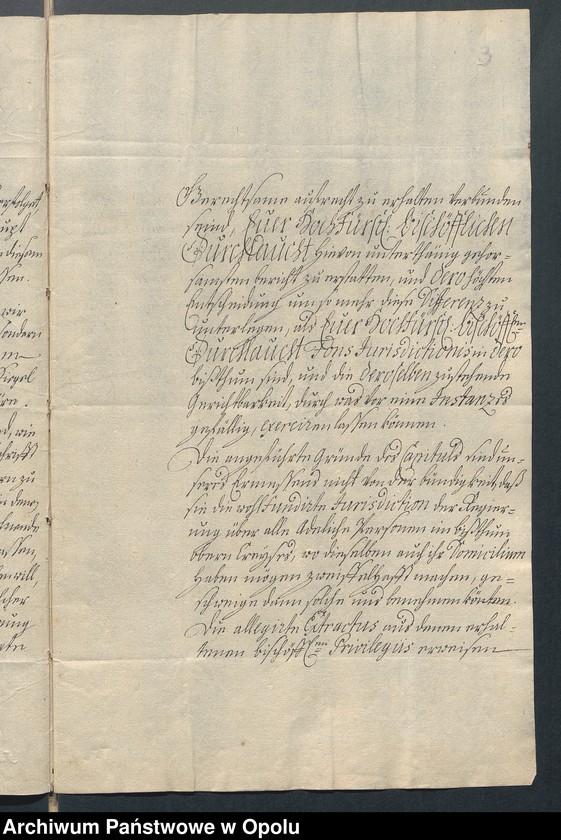 3
Gerechtsame aufrecht zu erhalten verbunden
seind, Euer Hochfürstl. bischöfflichen
Durchlaucht hievon unterthänig gehor-
samsten bericht zu erstatten, und dero höchsten
Entscheidung um so mehr diese Differenz zu
unterlegen, als Euer Hochfürstl. bischöffl.
Durchlaucht Fons Jurisdictionis in dero
bisthum sind, und die deroselben zustehende
Gerichtbarkeit, durch was vor eine Instanz es
gefällig, exerciren lassen können.
Die angeführte Gründe des Capituls sind un-
sers Ermessens nicht von der bündigkeit, daß
sie die wohl Fundirte Jurisdiction der Regier-
ung über alle Adeliche Personen im bisthum
obern Creyses, wo dieselben auch ihr Domicilium
haben mögen zweiffelhafft machen, ge-
schweige dann solche uns benehmen könten.
Die allegirte Extractus aus denen erhal-
tenen bischöffl. Privilegiis erweisen
Archiwum Państwowe w Opolu